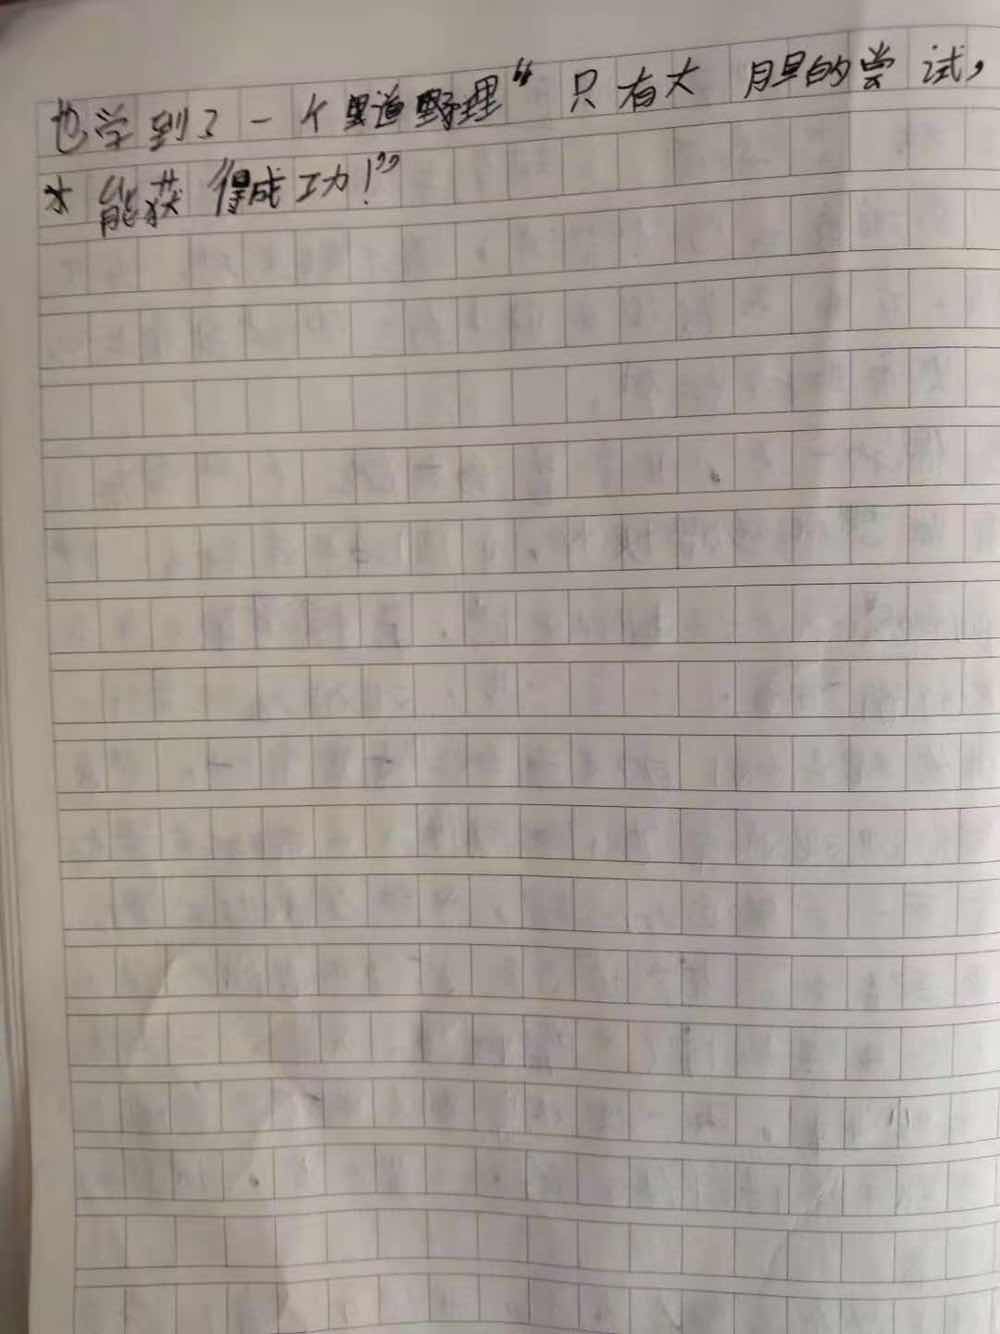 也学到了一个道理“只有大胆的尝试，
才能获得成功！”